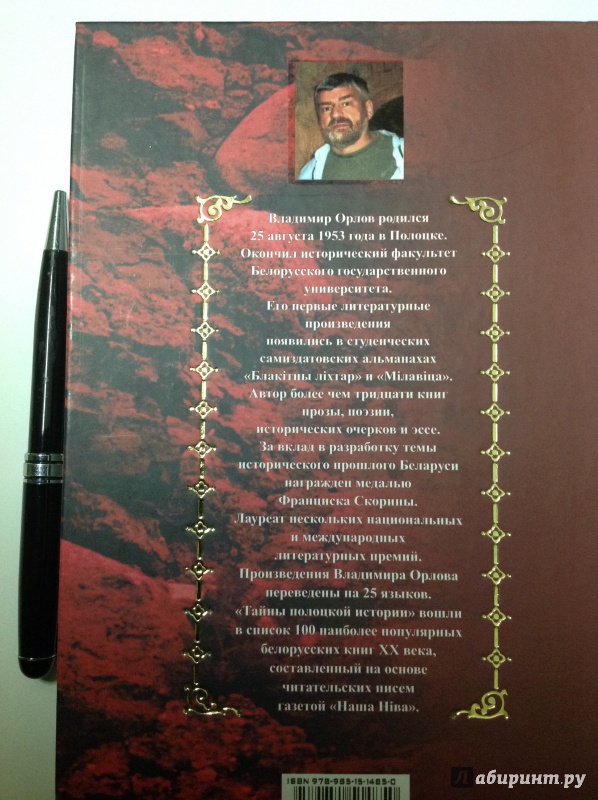 Владимир Орлов родился
25 августа 1953 года в Полоцке.
Окончил исторический факультет
Белорусского государственного
университета.
Его первые литературные
произведения
появились в студенческих
самиздатовских альманахах
«Блакітны ліхтар» и «Мілавіца».
Автор более чем тридцати книг
прозы, поэзии,
исторических очерков и эссе.
За вклад в разработку темы
исторического прошлого Беларуси
награжден медалью
Франциска Скорины.
Лауреат нескольких национальных
и международных
литературных премий.
Произведения Владимира Орлова
переведены на 25 языков.
«Тайны полоцкой истории» вошли
в список 100 наиболее популярных
белорусских книг XX века,
составленный на основе
читательских писем
газетой «Наша Ніва».
ISBN 978-985-15-1465-0
Лабиринт.ру